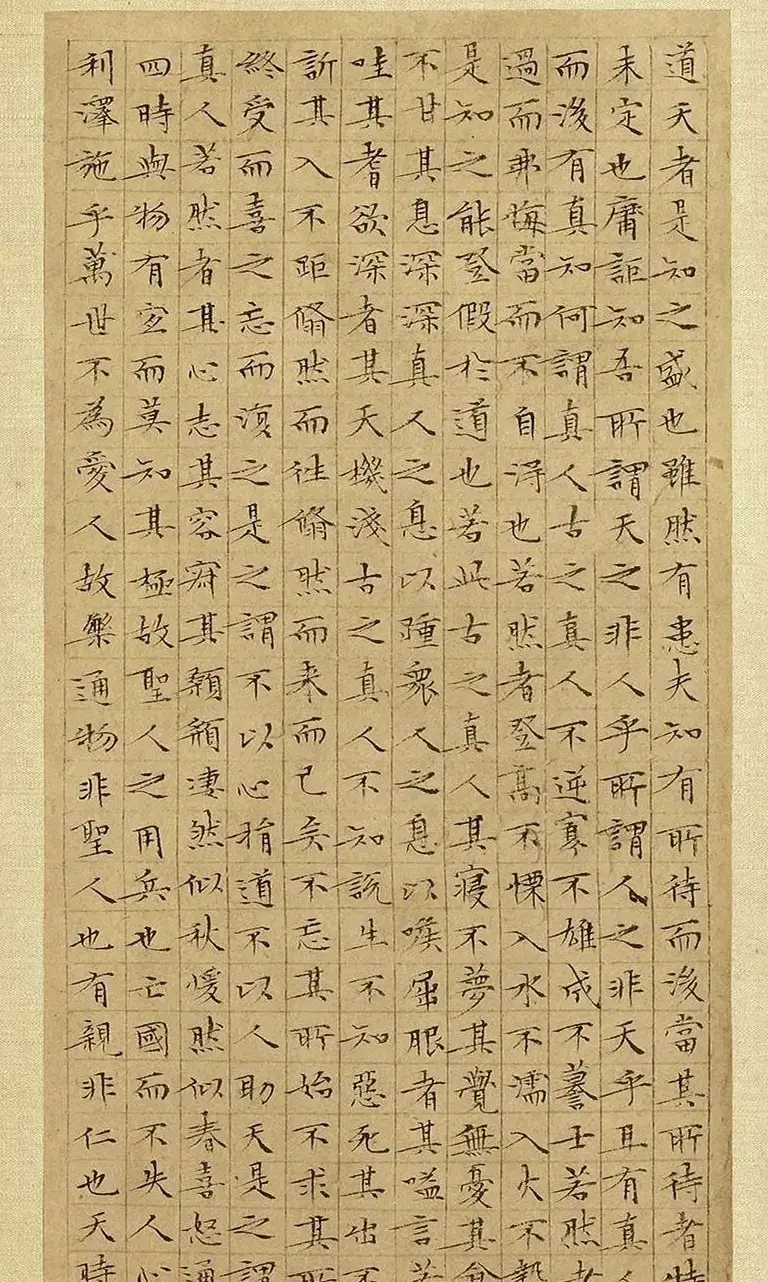 道天者是知之盛也雖然有患夫知有所待而後當其所待者特
未定也庸詎知吾所謂天之非人乎所謂人之非天乎且有真人
而後有真知何謂真人古之真人不逆寡不雄成不謩士若然者
過而弗悔當而不自得也若然者登高不慄入水不濡入火不熱
是知之能登假於道也若此古之真人其寢不夢其覺無憂其食
不甘其息深深真人之息以踵衆人之息以喉屈服者其嗌言若
哇其耆欲深者其天機淺古之真人不知說生不知惡死其出不
訢其入不距翛然而往翛然而來而已矣不忘其所始不求其所
終受而喜之忘而復之是之謂不以心捐道不以人助天是之謂
真人若然者其心志其容寂其顙頯凄然似秋煖然似春喜怒通
四時與物有宜而莫知其極故聖人之用兵也亡國而不失人心
利澤施乎萬世不為愛人故樂通物非聖人也有親非仁也天時